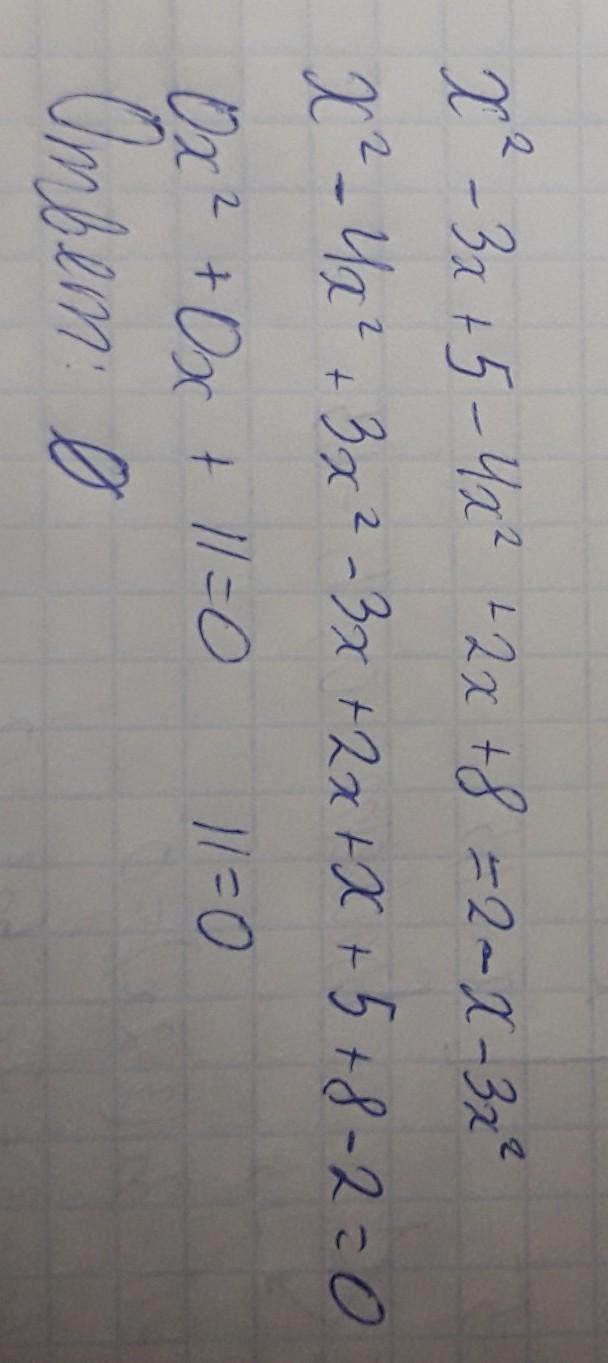 x² - 3x + 5 - 4x² + 2x + 8 = 2 - x - 3x²
x² - 4x² + 3x² - 3x + 2x + x + 5 + 8 - 2 = 0
0x² + 0x + 11 = 0 11 = 0
Ответ: ∅